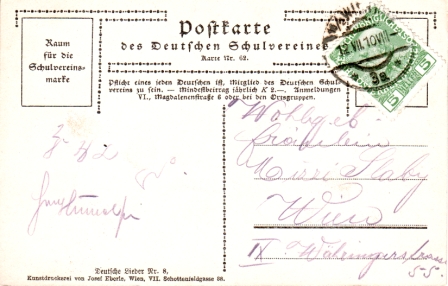 Raum
für die
Schulvereins-
marke
Postkarte
des Deutschen Schulvereines
Karte Nr. 62.
Pflicht eines jeden Deutschen ist, Mitglied des Deutschen Schul-
vereins zu sein. — Mindestbeitrag jährlich K 2.—. Anmeldungen
VI., Magdalenenstraße 6 oder bei den Ortsgruppen.
5
5
Wohlgeb
Fräulein
Mizzi Slaby
Wien
IX Währingerstrasse
55.
Deutsche Lieder Nr. 8.
Kunstdruckerei von Josef Eberle, Wien, VII. Schottenfeldgasse 38.